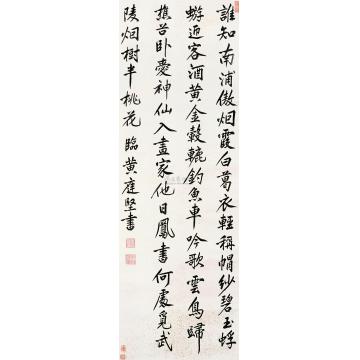 誰知南浦傲烟霞白葛衣輕稱帽紗碧玉蜉
蝣迎客酒黄金轂轆釣魚車吟歌雲鳥歸
樵谷卧愛神仙入畫家他日鳳書何處覓武
陵烟樹半桃花 臨黄庭堅書